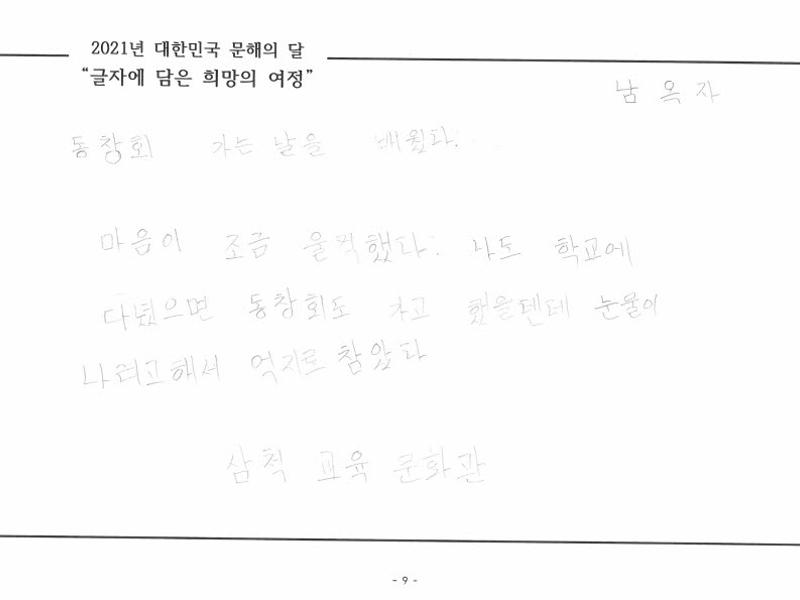 2021년 대한민국 문해의 달
“글자에 담은 희망의 여정”
남 옥 자
동창회 가는 날을 배웠다.
마음이 조금 울적했다. 나도 학교에
다녔으면 동창회도 가고 했을텐데 눈물이
나려고해서 억지로 참았다
삼척 교육 문화관
- 9 -